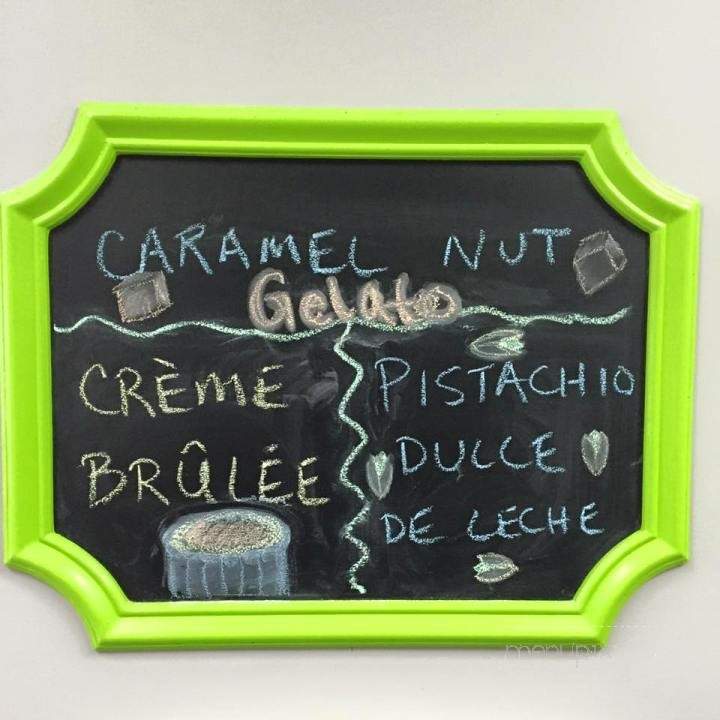 CARAMEL NUT
Gelato
CRÈME
BRÛLÉE
PISTACHIO
DULCE
DE LECHE